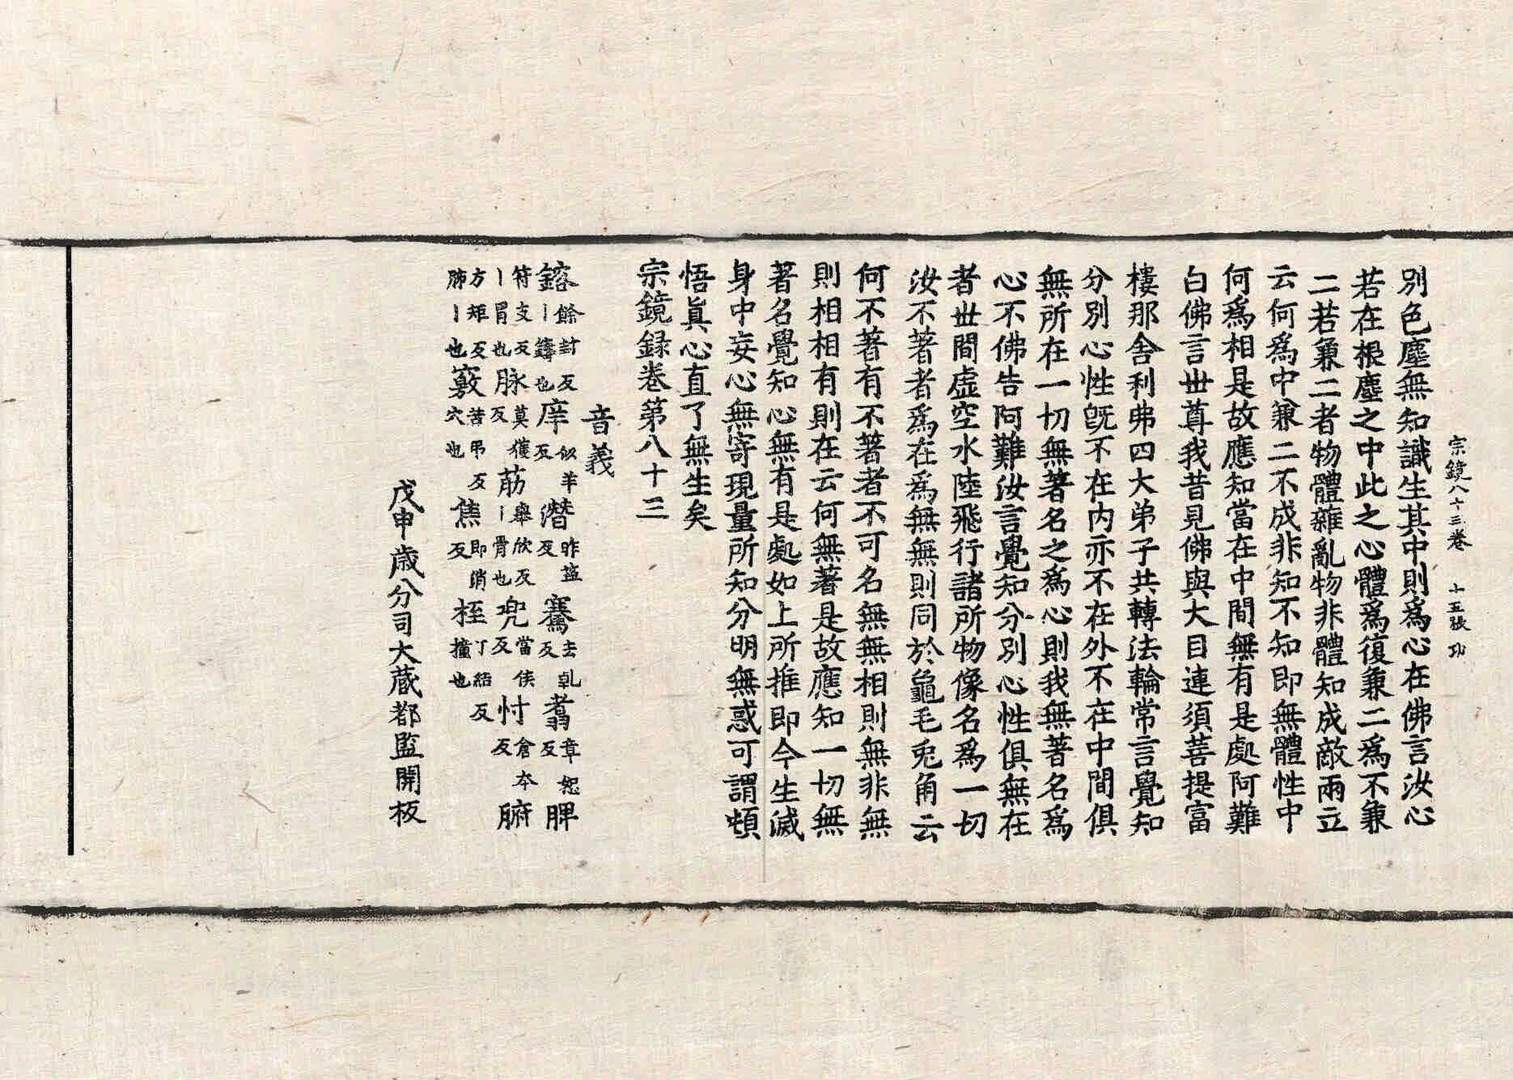 宗鏡八十三卷 十五張 功
別色塵無知識生其中則爲心在佛言汝心
若在根塵之中此之心體爲復兼二爲不兼
二若兼二者物體雜亂物非體知成敵兩立
云何爲中兼二不成非知不知即無體性中
何爲相是故應知當在中間無有是處阿難
白佛言世尊我昔見佛與大目連須菩提富
樓那舍利弗四大弟子共轉法輪常言覺知
分別心性旣不在內亦不在外不在中間俱
無所在一切無著名之爲心則我無著名爲
心不佛告阿難汝言覺知分別心性俱無在
者世間虛空水陸飛行諸所物像名爲一切
汝不著者爲在爲無無則同於龜毛兎角云
何不著有不著者不可名無無相則無非無
則相相有則在云何無著是故應知一切無
著名覺知心無有是處如上所推即今生滅
身中妄心無寄現量所知分明無惑可謂頓
悟眞心直了無生矣
宗鏡錄卷第八十三
音義
鎔餘封反丨鑄也庠似羊反潛昨鹽反騫去乹反翥章恕反脾
符支反丨胃也脉莫獲反筋擧欣反丨骨也兜當侯反忖倉夲反腑
方矩反肺丨也竅苦弔反穴也焦即消反桎丁紺反撞也
戊申歲分司大藏都監開板